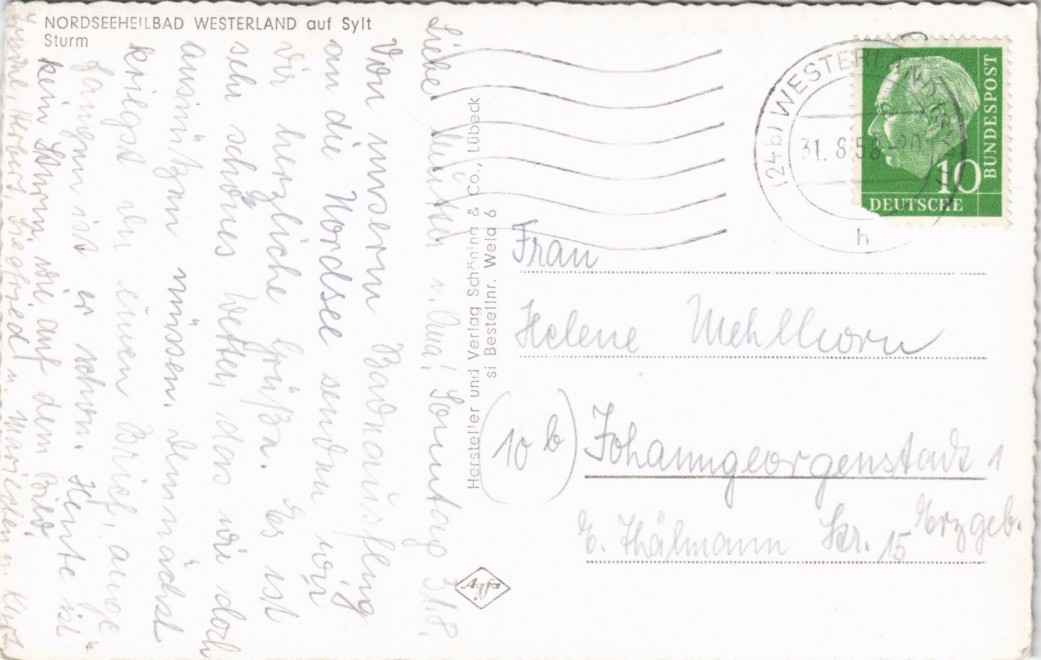 NORDSEEHEILBAD WESTERLAND auf Sylt
Sturm
Liebe Mutter u. Oma! Sonntag 31.8.
Von unserm Badeausflug
an die Nordsee senden wir
dir herzliche Grüße. Es ist
sehr schönes Wetter, das wir doch
ausnützen müssen. Demnächst
kriegst du einen Brief, ange-
fangen ist er schon. Heute ist
kein Sturm wie auf dem Bild.
Herbert, Siegfried u. Marlesten u. Kurt
Hersteller und Verlag Schöning & Co., Lübeck
si Bestellnr. Wela 6
Agfa
(24b) WESTERLAND
31. 8. 58
h
DEUTSCHE
BUNDESPOST
10
Frau
Helene Mehlhorn
(10b) Johanngeorgenstadt 1
Erzgeb.
E. Thälmann Str. 15